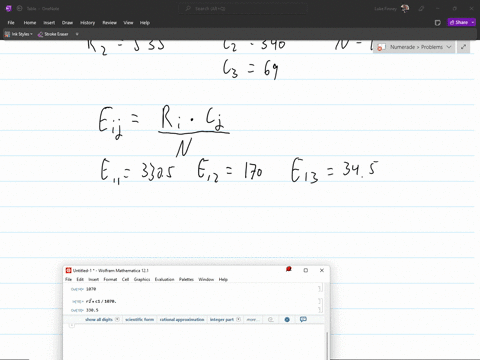 File Home Insert Draw History Review View Help
Ink Styles Stroke Eraser
Share
Numerade > Problems
R2 = 535 C2 = 340 N =
C3 = 69
Eij = Ri · Cj
N
E11 = 330.5 E12 = 170 E13 = 34.5
Untitled-1 * - Wolfram Mathematica 12.1
File Edit Insert Format Cell Graphics Evaluation Palettes Window Help
1070
330.5
show all digits scientific form rational approximation integer part more...